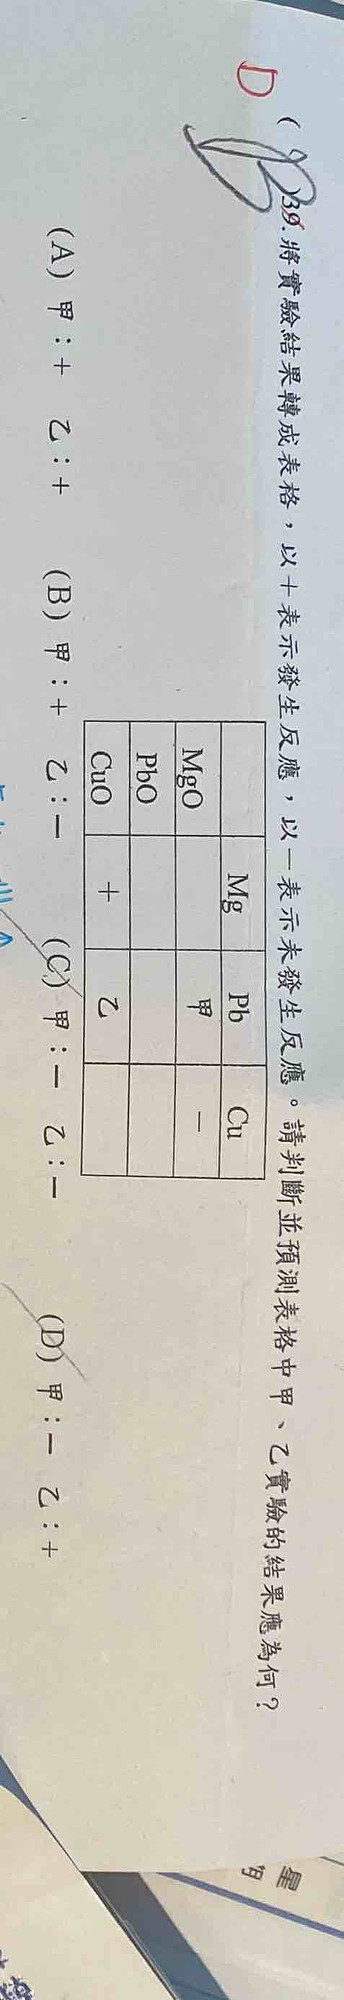 D
( B )39.將實驗結果轉成表格，以＋表示發生反應，以－表示未發生反應。請判斷並預測表格中甲、乙實驗的結果應為何？
Mg Pb Cu
MgO 甲 －
PbO
CuO ＋ 乙
(A) 甲：＋ 乙：＋ (B) 甲：＋ 乙：－ (C) 甲：－ 乙：－ (D) 甲：－ 乙：＋
星